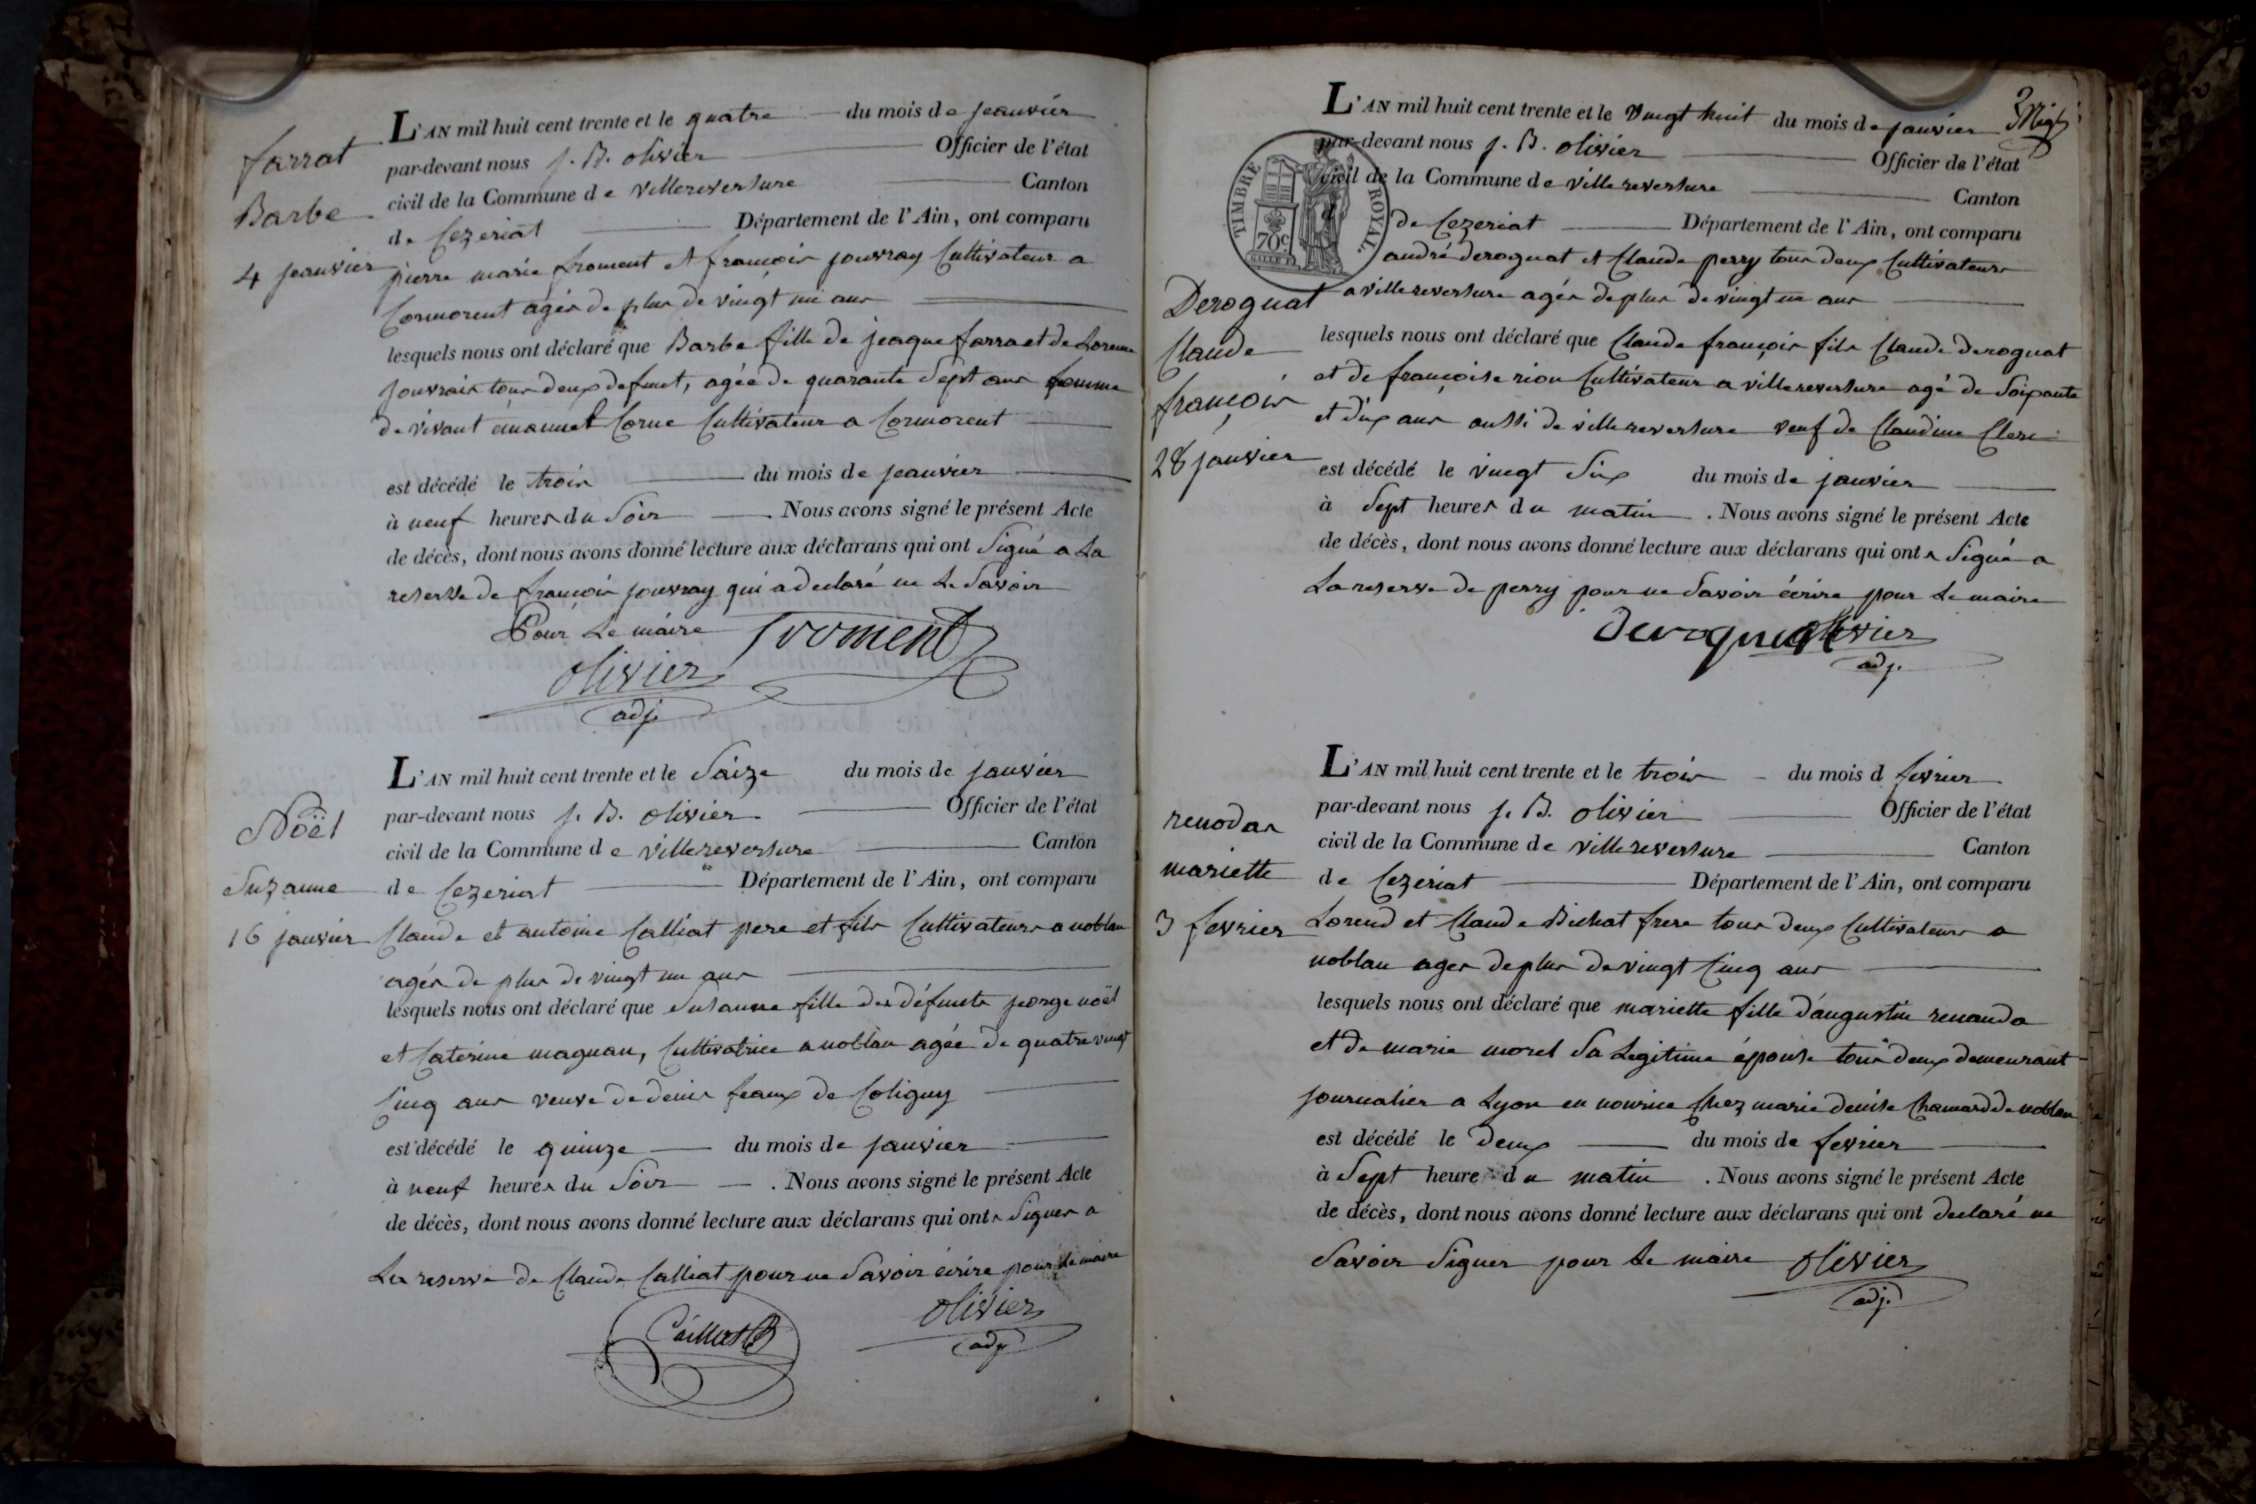 farrat
Barbe
4 jeanvier
L'AN mil huit cent trente et le quatre du mois de jeanvier
par-devant nous j. B. olivier Officier de l'état
civil de la Commune de villereversure Canton
de Cezeriat Département de l'Ain, ont comparu
pierre marie froment et françois jouvray Cultivateur a
Cormorent agés de plus de vingt un ans
lesquels nous ont déclaré que Barbe fille de jeaque farra et de Lorence
jouvrais tous deux defunct, agée de quarante Sept ans femme
de vivant émanuel Corne Cultivateur a Cormorent
est décédé le trois du mois de jeanvier
à neuf heures du Soir Nous avons signé le présent Acte
de décès, dont nous avons donné lecture aux déclarans qui ont Signé a La
reserve de françois jouvray qui a declaré ne Le Savoir
Pour Le maire froment
olivier
adj.
Noël
Suzanne
16 janvier
L'AN mil huit cent trente et le Saize du mois de janvier
par-devant nous j. B. olivier Officier de l'état
civil de la Commune de villereversure Canton
de Cezeriat Département de l'Ain, ont comparu
Claude et antoine Calliat pere et fils Cultivateurs a noblan
agés de plus de vingt un ans
lesquels nous ont déclaré que Susanne fille des défuncts jeorge noël
et Caterine magnan, Cultivatrice a noblan agée de quatre vingt
Cinq ans veuve de denis feaux de Coligny
est décédé le quinze du mois de janvier
à neuf heures du Soir . Nous avons signé le présent Acte
de décès, dont nous avons donné lecture aux déclarans qui onts Signer a
La reserve de Claude Calliat pour ne Savoir écrire pour Le maire
Caillat olivier
adj.
L'AN mil huit cent trente et le vingt huit du mois de janvier
par-devant nous j. B. olivier Officier de l'état
civil de la Commune de villereversure Canton
de Cezeriat Département de l'Ain, ont comparu
TIMBRE ROYAL.
70c
andré deroguat et Claude perry tous deux Cultivateurs
a villereversure agés de plus de vingt un ans
Deroguat
Claude
françois
28 janvier
lesquels nous ont déclaré que Claude françois fils Claude deroguat
et de françoise rion Cultivateur a villereversure agé de Soixante
et dix ans aussi de villereversure veuf de Claudine Clerc
est décédé le vingt Six du mois de janvier
à Sept heures du matin . Nous avons signé le présent Acte
de décès, dont nous avons donné lecture aux déclarans qui onts Signé a
La reserve de perry pour ne Savoir écrire pour Le maire
deroguat olivier
adj.
renodas
mariette
3 fevrier
L'AN mil huit cent trente et le trois du mois d fevrier
par-devant nous j. B. olivier Officier de l'état
civil de la Commune de villereversure Canton
de Cezeriat Département de l'Ain, ont comparu
Lorend et Claude Bichat frere tous deux Cultivateurs a
noblan ages de plus de vingt Cinq ans
lesquels nous ont déclaré que mariette fille d'augustin renauda
et de marie morel Sa Legitime épouse tous deux demeurant
journalier a Lyon en nourice Chez marie denise Chanard de noblan
est décédé le deux du mois de fevrier
à Sept heure du matin . Nous avons signé le présent Acte
de décès, dont nous avons donné lecture aux déclarans qui ont declaré ne
Savoir Signer pour Le maire olivier
adj.